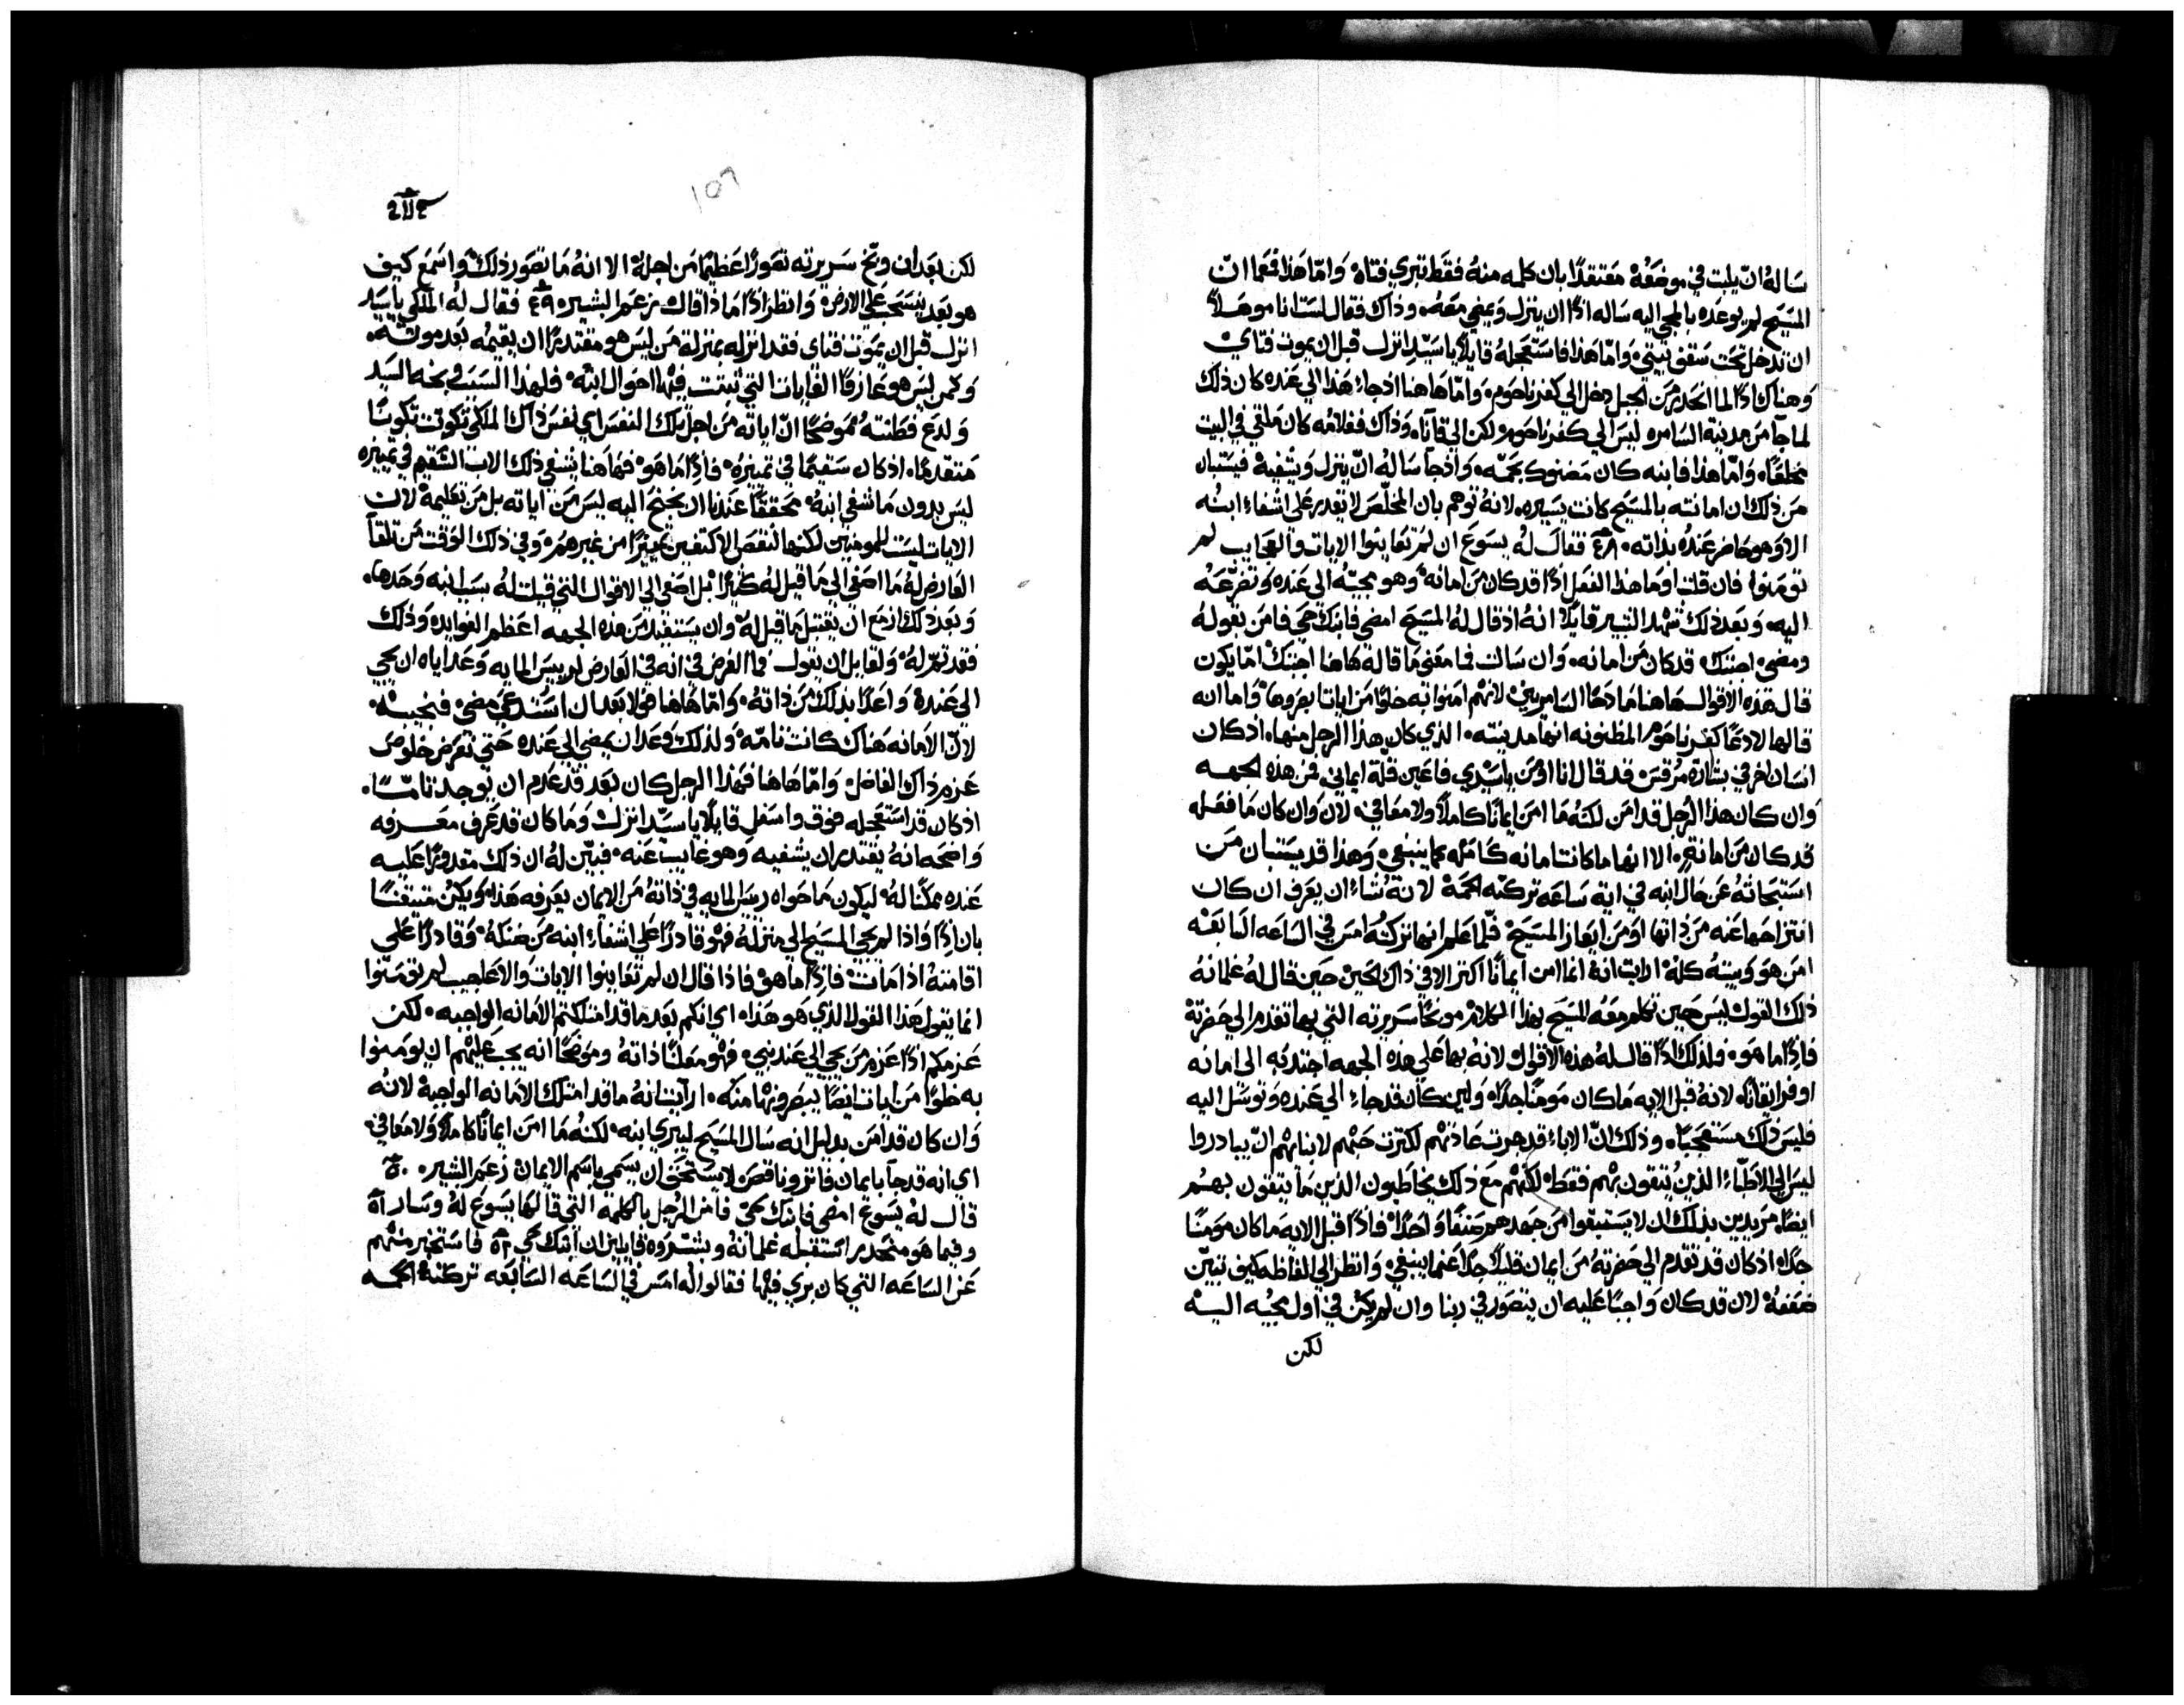 ساله ان يلبت في موضعه معتقدًا بان كلمه منه فقط تبري فتاه وامّا هذا فعما انّ
المسيح لم يوعده بالمجي اليه ساله اذًا ان ينزل ويمضي معه وذاك فقال لست انا موهلًا
ان تدخل تحت سقف بيتي وامّا هذا فاستعجله قايلًا يا سيّد انزل قبل ان يموت فتاي
وهناك اذًا لما انحدر من الجبل دخل الي كفرناحوم وامّا هاهنا اذ جاء هذا الي عنده كان ذلك
لما جا من مدينة السامره ليس الي كفرناحوم ولكن الي قانا وذاك فغلامه كان ملقي في البيت
مخلعًا وامّا هذا فابنه كان مضنوك بحمّه واذ جا ساله انّ ينزل ويشفيه فيستبان
من ذلك ان امانته بالمسيح كانت يسيره لانه توهم بان المخلّص لا يقدر علي اشفاء ابنه
الا وهو حاضر عنده بذاته ٤٨ فقال له يسوع ان لم تعاينوا الايات والعجايب لم
تومنوا فان قلت اوما هذا الفعل اذًا قد كان من امانه وهو مجيّه الي عنده وتضرّعه
اليه وبعد ذلك شهد البشير قايلًا انه اذ قال له المسيح امضي فابنك حي فامن بقوله
ومضي اجبتك قد كان من امانه وان سالت فما معني ما قاله هاهنا اجبتك امّا يكون
قال هذه الاقوال هاهنا مادحًا السامريين لانهم امنوا به خلوًا من ايات بصروها واما انه
قالها لادعًا كفرناحوم المظنونه انها مدينته الذي كان هذا الرجل منها اذ كان
انسان اخر في بشارة مرقس قد قال انا اومن يا سيدي فاعين قلة ايماني فمن هذه الجهه
وان كان هذا الرجل قد امن لكنه ما امن ايمانًا كاملًا ولا معافي لان وان كان ما فعله
قد كان من امانةٍ الا انها ما كانت امانه كامله كما ينبغي وهذا قد يستبان من
استبحاثه عن حال ابنه في اية ساعه تركته الحمّة لانه شاء ان يعرف ان كان
انتزاحها عنه من ذاتها او من ايعاز المسيح فلّما علم انها تركته امس في الساعه السابعه
امن هو وبيته كله ارايت انه انما امن ايمانًا اكتر الا في ذاك الحين حين قال له غلمانه
ذلك القول ليس حين تكلم معه المسيح بهذا الكلام موبخًا سريرته التي بها تقدم الي حضرتة
فاذًا ما هو ولذلك اذًا قال له هذه الاقوال لانه بها علي هذه الجهه اجتذبه الي امانه
اوفر ايقانًا لانه قبل الايه ما كان مومنًا جدًا ولين كان قد جاء الي عنده وتوسّل اليه
فليس ذلك مستعجبًا وذلك انّ الاباء قد جرت عادتهم لكترت حبّهم لابنايهم انّ يبادروا
ليس الي الاطبّاء الذين يتقون بهم فقط لكنهم مع ذلك يخاطبون الذين ما يتقون بهم
ايضًا مريدين بذلك ان لا يستبقوا من جهدهم صنفًا واحدًا فاذًا قبل الايه ما كان مومنًا
جدًا اذ كان قد تقدم الي حضرتة من ايمان قليلًا جدًا عمّا ينبغي وانظر الي الفاظه كيف تبيّن
ضعفه لان قد كان واجبًا عليه ان يتصوّر في ربنا وان لم يكن في اول مجيّه اليه
لكن
١٥٦
لكن بعد ان وبّخ سريرته تصورًا عظيمًا من اجله الا انه ما تصور ذلك واسمع كيف
هو بعد ينسحب علي الارض وانظر اذًا ماذا قال زعم البشير ٤٩ فقال له الملكي يا سيد
انزل قبل ان يموت فتاي فقد انزله بمنزلة من ليس هو مقتدرًا ان يقيمه بعد موته
وكمن ليس هو عارفًا الغايات التي تبتت فيها احوال ابنه فلهذا السبب وبخه السيد
ولدع فطنته موضحًا انّ اياته من اجل تلك النفس اي نفس ذاك الملكي تكونت تكونًا
متقدمًا اذ كان سقيمًا في تمييزه فاذًا ما هو فهاهنا يشفي ذلك الاب السّقيم في تمييزه
ليس بدون ما شفي ابنه محققًا عندنا ان يجنح اليه ليس من اياته بل من تعليمه لان
الايات ليست للمومنين لكنها لنقص الاكتفين تمييزًا من غيرهم وفي ذلك الوقت من تلقآ
العارض له ما اصغي الي ما قيل له كثيرًا بل اصغي الي الاقوال التي قيلت له بسبب ابنه وحدها
وبعد ذلك ازمع ان يقتبل ما قيل له وان يستفيد من هذه الجهه اعظم الفوايد وذلك
فقد تمّ له ولقايل ان يقول فما الغرض في انه في العارض لرييس المايه وعد اياه ان يجي
الي عنده واعلا بذلك من ذاته وامّا هاهنا فولا بعد ان استدعي مضي فنجيبه
لانّ الامانه هناك كانت تامّه ولذلك وعد ان يمضي الي عنده حتي نعرف خلوص
عزم ذاك الفاضل وامّا هاهنا فهذا الرجل كان بعد قد عدم ان يوجد تامًّا
اذ كان قد استعجله فوق واسفل قايلًا يا سيّد انزل وما كان قد عرف معرفه
واضحه انه يقتدر ان يشفيه وهو غايب عنه فبيّن له ان ذلك مقدورًا عليه
عنده ممكنًا له ليكون ما حواه رييس المايه في ذاته من الايمان يعرفه هذا ويكن متيقنًا
بان اذًا واذا لم يجي المسيح الي منزله فهو قادرًا علي اشفاء ابنه من ضنكه وقادرًا علي
اقامته اذا مات فاذًا ما هو فاذا قال ان لم تعاينوا الايات والاعاجيب لم تومنوا
انما يقول هذا القول الذي هو هذا اي انكم بعد ما قد امتلكتم الامانه الواجبه لكن
عزمكم اذًا عزم من يجي الي عند نبي فهو معلنًا ذاته وموضحًا انه يجب عليهم ان يومنوا
به خلوًا من ايات ايضًا يبصرونها منه ارايت انه ما قد امتلك الامانه الواجبه لانه
وان كان قد امن بدليل انه سال المسيح ليبري ابنه لكنه ما امن ايمانًا كاملًا ولا معافي
اي انه قد جا بايمان فاتر وناقص لا يستحق ان يسمي باسم الايمان زعم البشير ٥٠
قال له يسوع امضي فابنك حيّ فامن الرجل بالكلمه التي قالها يسوع له وسار ٥١
وفيما هو منحدر استقبله غلمانه وبشّروه قايلين ان ابنك حي ٥٢ فاستخبر منهم
عن الساعه التي كان بري فيها فقالوا له امس في الساعه السابعه تركته الحمه